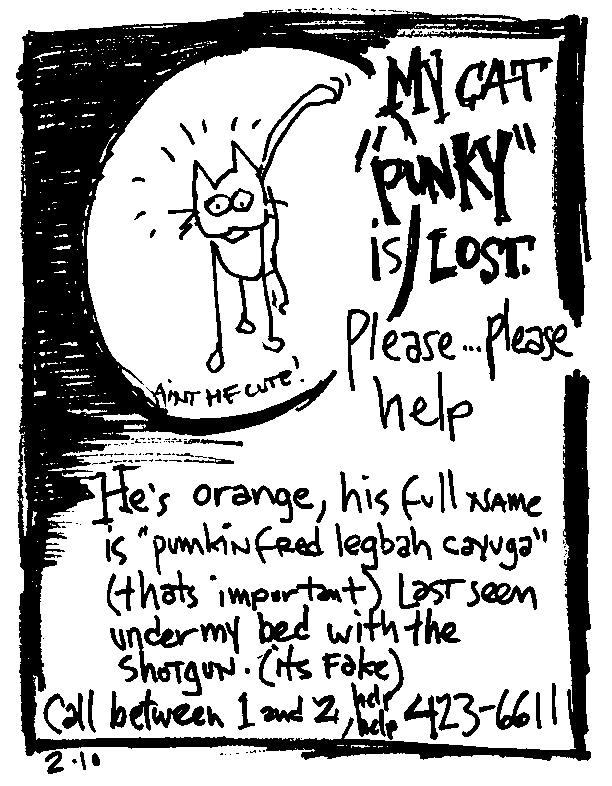 MY CAT
"PUNKY"
is LOST.
Please...please
help
AiNT HE CUTE!
He's orange, his full NAME
is "pumkin fred legbah cayuga"
(thats important) Last seen
under my bed with the
SHOTGUN. (its Fake)
Call between 1 and 2, help help 423-6611
2.10